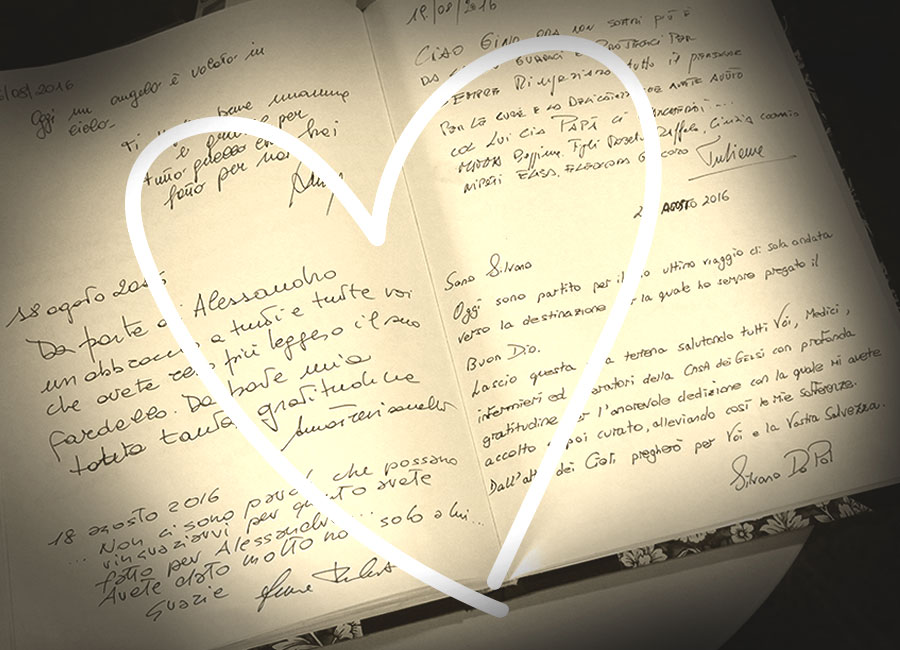 /08/2016
Oggi un angelo è volato in
cielo.
bene
e per
tutto
fatto per noi
18 agosto
Da parte Alessandro
un abbraccio a tutti e tutte voi
che avete più leggero il suo
fardello. Da parte mia
tanta gratitudine
18 agosto 2016
... Non ci sono parole che possano
... ringraziarvi per quanto avete
fatto per Alessandro... solo a lui...
Avete dato molto
Grazie
19/08/2016
CIAO GINO ORA NON SOFFRI PIÙ E
DA GUARDACI E PROTEGGICI PER
SEMPRE Ringraziamo tutto il personale
PER LE CURE E LA DEDIZIONE AVETE AVUTO
COL LUI CIAO PAPÀ CI
Figli
NIPOTI ELISA, ELEONORA
AGOSTO 2016
Sono Silvano
Oggi sono partito per il ultimo viaggio di sola andata
verso la destinazione per la quale ho sempre pregato il
Buon Dio.
Lascio questa terrena salutando tutti Voi, Medici,
infermieri ed operatori della Casa dei Gelsi con profonda
gratitudine per l'amorevole dedizione con la quale mi avete
accolto e poi curato, alleviando così le mie sofferenze.
Dall'alto dei Cieli pregherò per Voi e la Vostra Salvezza.
Silvano Da Pol